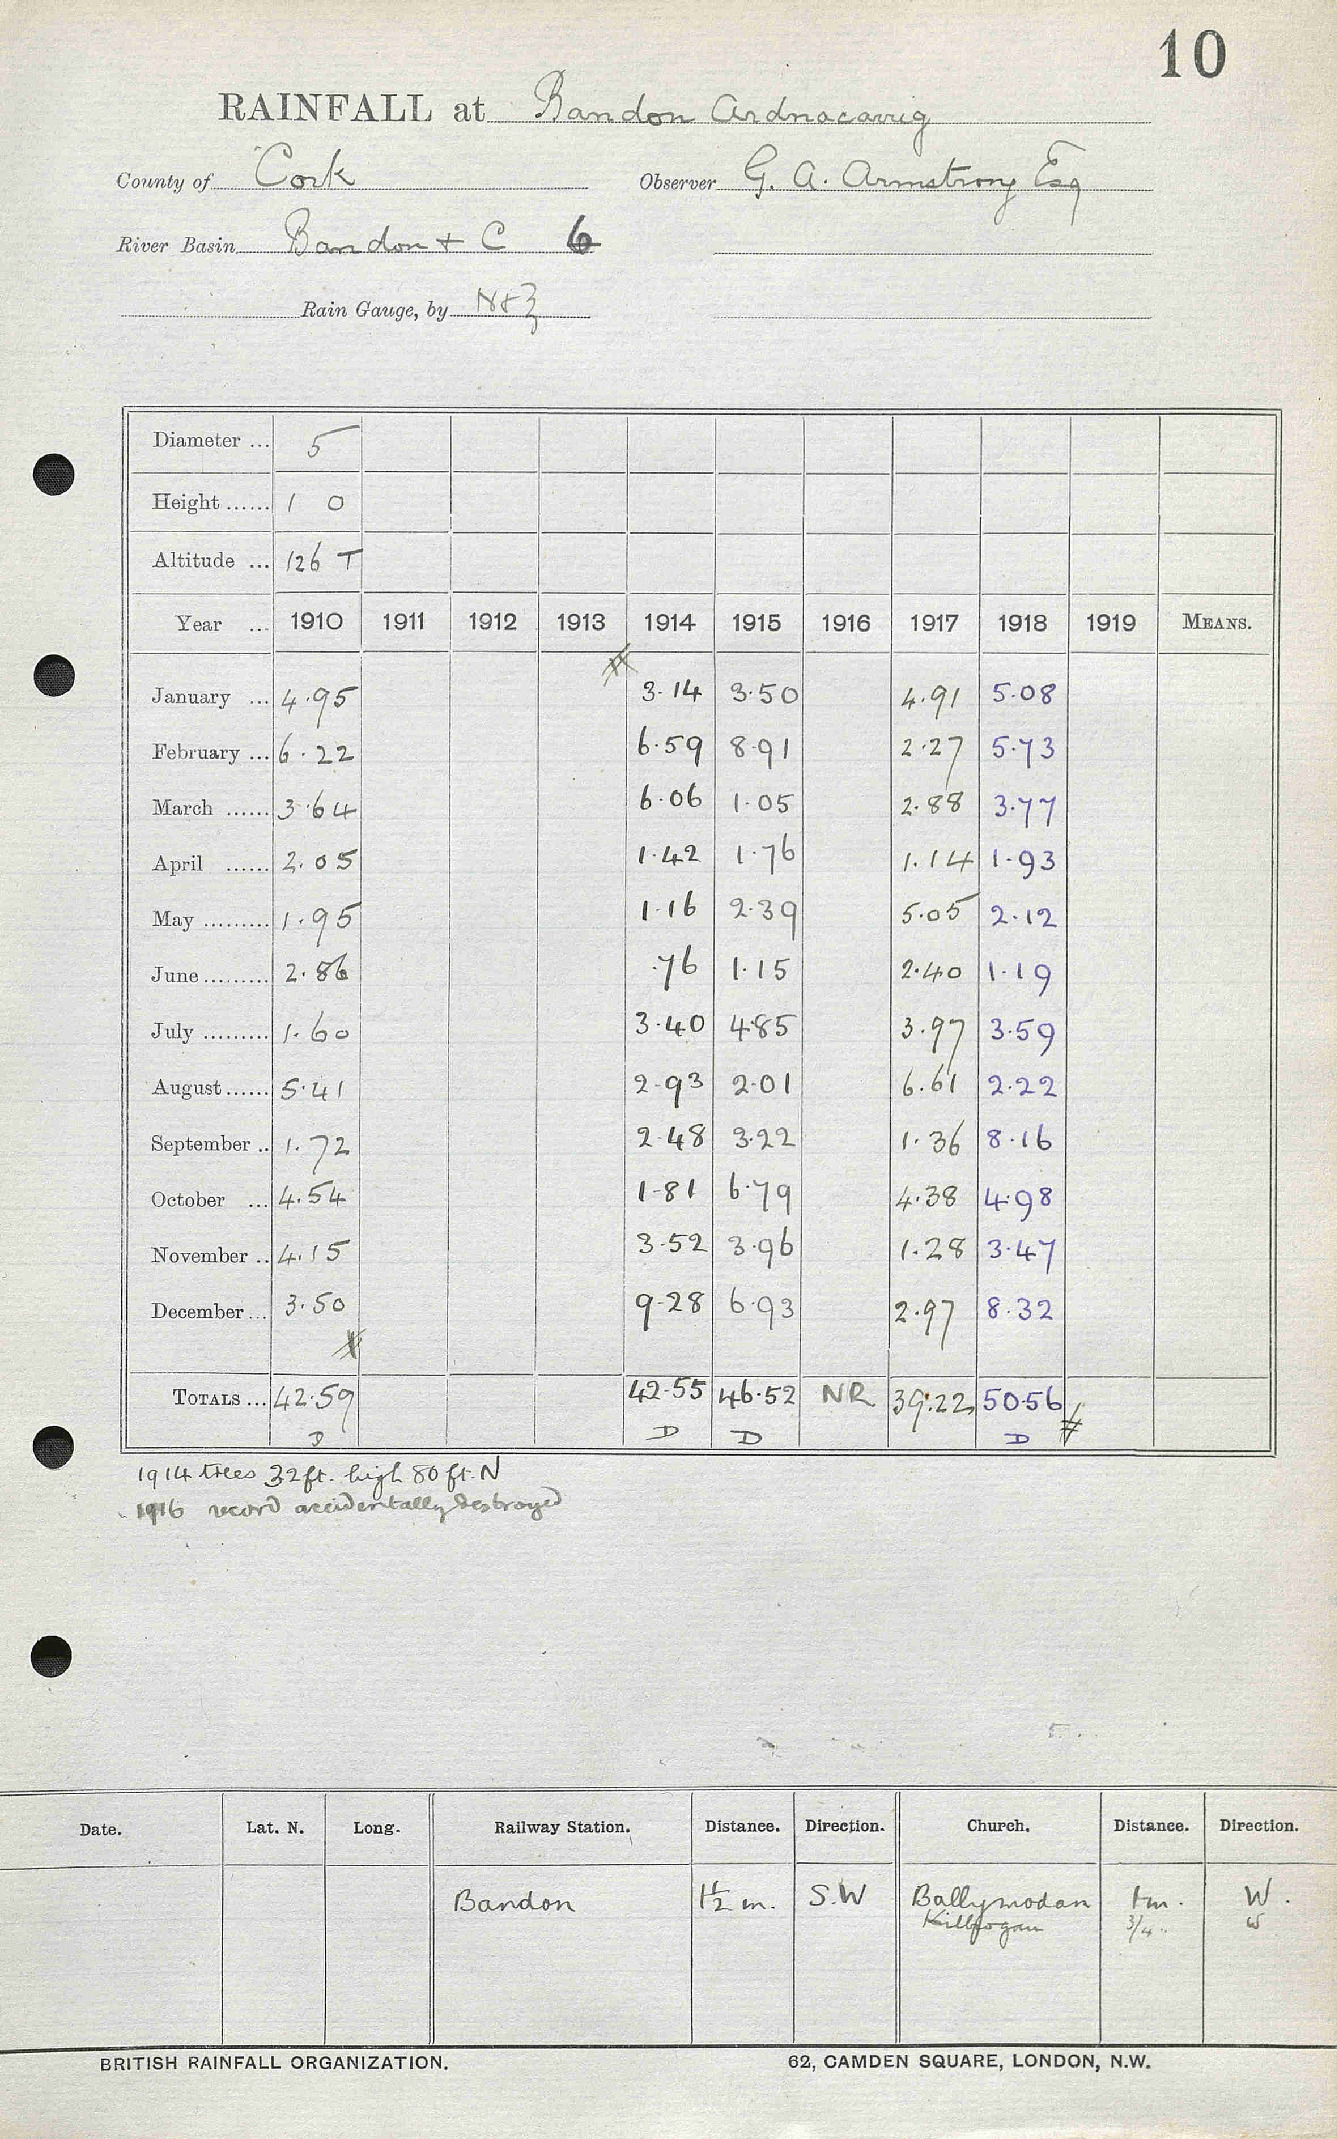 10
RAINFALL at Bandon Ardnacavig
County of Cork Observer G. A. Armstrong Esq
River Basin Bandon + C 6
Rain Gauge, by N&Z
Diameter ... 5
Height ...... 1 0
Altitude ... 126 T
Year ... 1910 1911 1912 1913 1914 1915 1916 1917 1918 1919 MEANS.
January ... 4.95 3.14 3.50 4.91 5.08
February ... 6.22 6.59 8.91 2.27 5.73
March ...... 3.64 6.06 1.05 2.88 3.77
April ...... 2.05 1.42 1.76 1.14 1.93
May ......... 1.95 1.16 2.39 5.05 2.12
June ......... 2.86 .76 1.15 2.40 1.19
July ......... 1.60 3.40 4.85 3.97 3.59
August ...... 5.41 2.93 2.01 6.61 2.22
September .. 1.72 2.48 3.22 1.36 8.16
October ... 4.54 1.81 6.79 4.38 4.98
November .. 4.15 3.52 3.96 1.28 3.47
December ... 3.50 9.28 6.93 2.97 8.32
TOTALS ... 42.59 42.55 46.52 NR 39.22 50.56
D D D D
1914 trees 32ft. high 80 ft. N
1916 record accidentally destroyed
Date. Lat. N. Long. Railway Station. Distance. Direction. Church. Distance. Direction.
Bandon 1½ m. S.W Ballymodan 1m. W.
Kilbrogan 3/4 W
BRITISH RAINFALL ORGANIZATION. 62, CAMDEN SQUARE, LONDON, N.W.